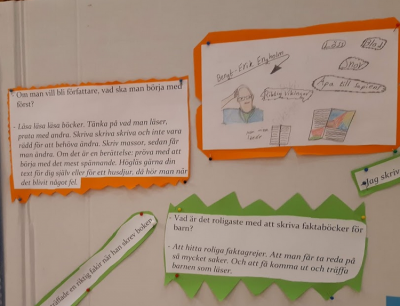 Om man vill bli författare, vad ska man börja med
först?
- Läsa läsa läsa böcker. Tänka på vad man läser,
prata med andra. Skriva skriva skriva och inte vara
rädd för att behöva ändra. Skriv massor, sedan får
man ändra. Om det är en berättelse: pröva med att
börja med det mest spännande. Höglös gärna din
text för dig själv eller för ett husdjur, då hör man när
det blivit något fel.
Bengt-Erik Engholm
Apa till
- Jag skriv
- Vad är det roligaste med att skriva faktaböcker för
barn?
- Att hitta roliga faktagrejer. Att man får ta reda på
så mycket saker. Och att få komma ut och träffa
barnen som läser.
träffade en riktig fakir när han skrev boken